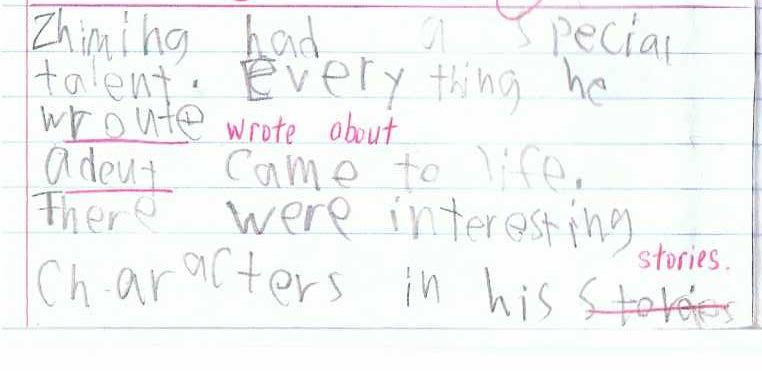 Zhiming had a special
talent. Every thing he
wroute wrote about
adout came to life.
There were interesting
stories.
Characters in his stories